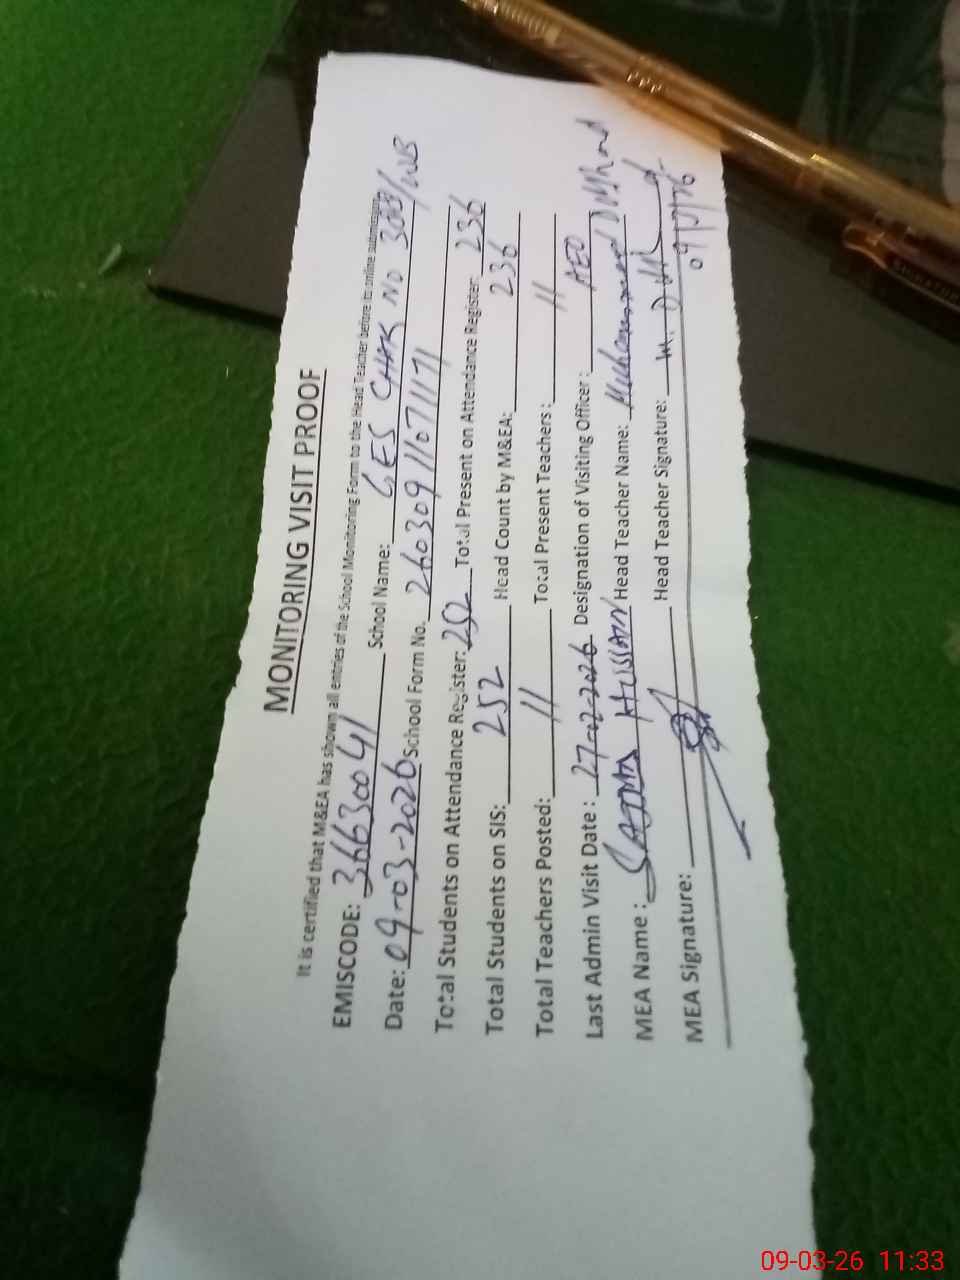 MONITORING VISIT PROOF
It is certified that M&EA has shown all entries of the School Monitoring Form to the Head Teacher before its online submission.
EMISCODE: 36630041 School Name: GES CHAK NO /WB
Date: 09-03-2026 School Form No. 26030911071171
Total Students on Attendance Register: 252 Total Present on Attendance Register: 236
Total Students on SIS: 252 Head Count by M&EA: 236
Total Teachers Posted: 11 Total Present Teachers: 11
Last Admin Visit Date: 27-02-2026 Designation of Visiting Officer: AEO
MEA Name: SAJJAD HUSSAIN Head Teacher Name: Muhammad
MEA Signature: Head Teacher Signature: M.
SIGNATURE
09-03-26 11:33